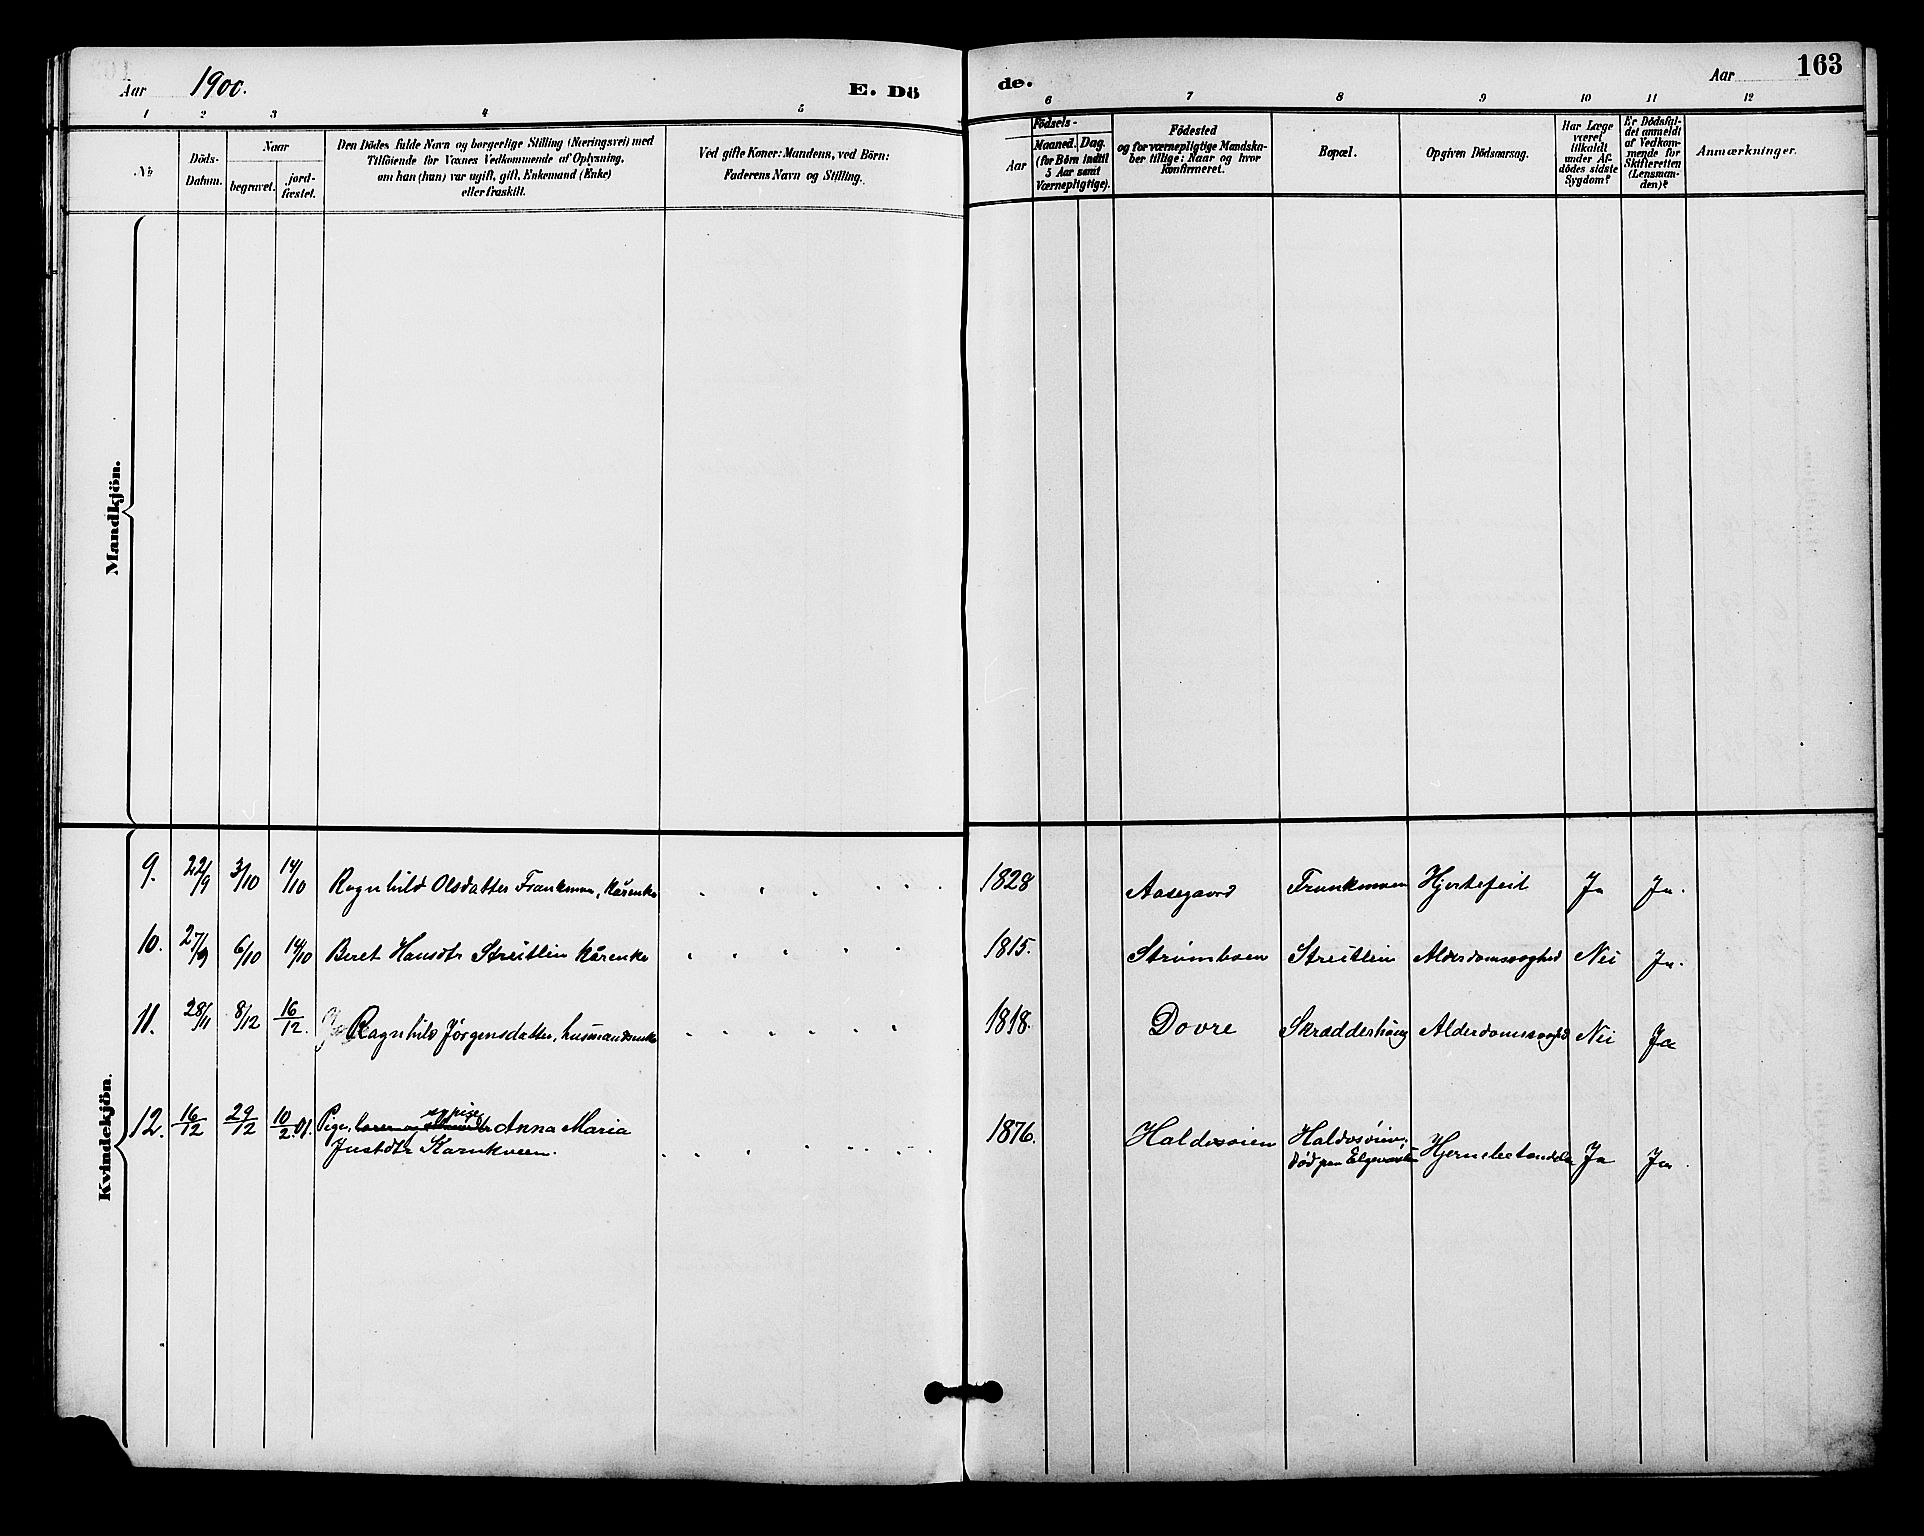 Aar 1900. E. Dö
de. Aar 163
1 2 3 4 5 6 7 8 9 10 11 12
№
Döds-
Datum.
Naar
begravet.
jord-
fæstet.
Den Dödes fulde Navn og borgerlige Stilling (Næringsvei) med
Tilföiende for Voxnes Vedkommende af Oplysning,
om han (hun) var ugift, gift, Enkemand (Enke)
eller fraskilt.
Ved gifte Koner: Mandens, ved Börn:
Faderens Navn og Stilling.
Födsels-
Aar
Maaned. Dag.
(for Börn indtil
5 Aar samt
Værnepligtige).
Födested
og for værnepligtige Mandska-
ber tillige: Naar og hvor
Konfirmeret.
Bopæl.
Opgiven Dödsaarsag.
Har Læge
været
tilkaldt
under Af-
dödes sidste
Sygdom?
Er Dödsfal-
det anmeldt
af Vedkom-
mende for
Skifteretten
(Lensman-
den)?
Anmærkninger.
Mandkjön.
Kvindekjön.
9. 22/9 3/10 14/10 Ragnhild Olsdatter Frankmoen, kårenke 1828 Aasegaard Frankmoen Hjertefeil Ja Ja.
10. 27/9 6/10 14/10 Beret Hansdtr Streitlien kårenke 1815. Strømboen Streitlien Alderdomssvaghed Nei Ja.
11. 28/11 8/12 16/12. Ragnhild Jørgensdatter, husmandsenke 1818. Dovre Skradderhaug Alderdomssvaghed Nei Ja
12. 16/12 29/12 10/2 01. Pige, sypige Anna Maria 1876. Haldosøien Haldosøien, Hjernebetændelse Ja Ja.
Justdtr Kornkveen. død paa